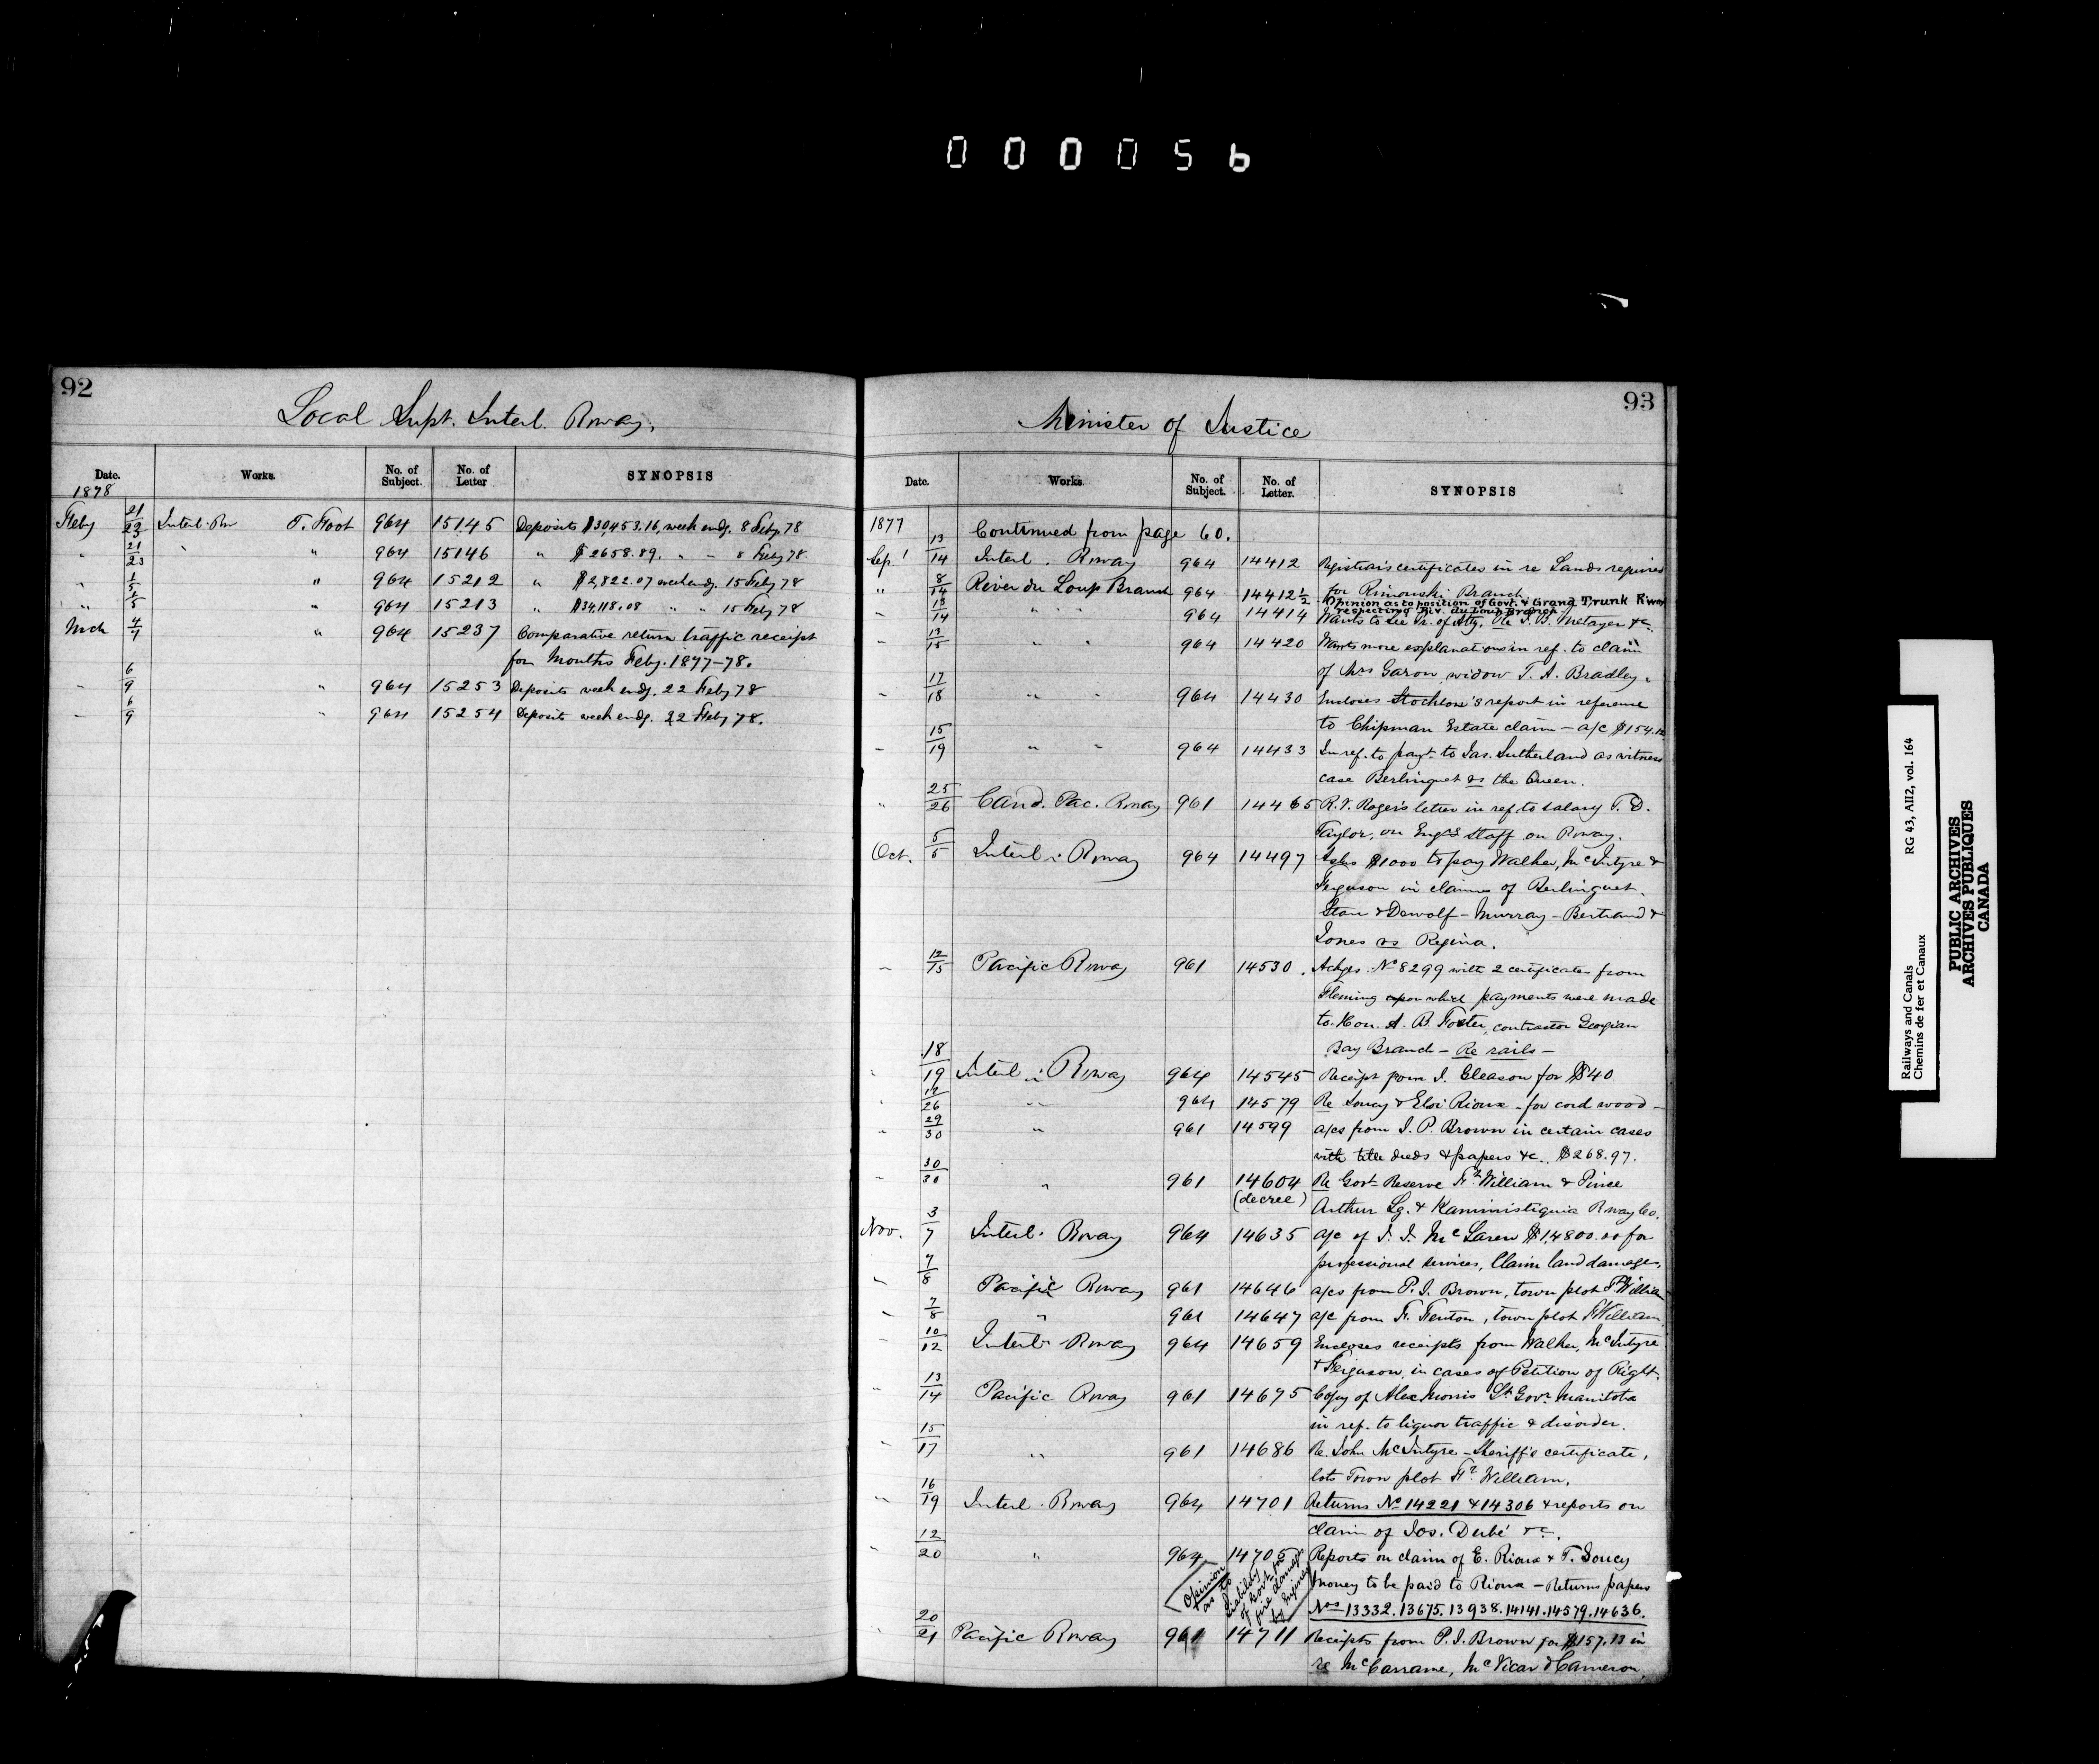 000056
92
Local Supt. Interl. Rway.
Date. Works. No. of Subject. No. of Letter SYNOPSIS
1878
Feby 21/23 Interl. Rw T. Foot 964 15145 Deposits $30,453.16, week endg. 8 Feby 78
" 21/23 " " 964 15146 " $2658.89. " " 8 Feby 78.
" 1/5 " 964 15212 " $2,822.07 week endg. 15 Feby 78
" 1/5 " 964 15213 " $34,118.08 " " 15 Feby 78
Mch 4/7 " 964 15237 Comparative return traffic receipt
for Months Feby. 1877-78.
" 6/9 " 964 15253 Deposits week endg. 22 Feby 78
" 6/9 " 964 15254 Deposits week endg. 22 Feby 78.
93
Minister of Justice
Date. Works. No. of Subject. No. of Letter. SYNOPSIS
1877 Continued from page 60.
Sep. 13/14 Interl. Rway 964 14412 Registrar's certificates in re Lands required
for Rimouski Branch
" 8/14 River du Loup Branch 964 14412½ Opinion as to position of Govt. & Grand Trunk Rway
respecting Riv. du Loup Branch
" 13/14 " " " 964 14414 Wants to see Pr. of Atty. Re J. B. Metayer &c.
" 13/15 " " 964 14420 Wants more explanations in ref. to claim
of Mrs Garon, widow T. A. Bradley.
" 17/18 " " 964 14430 Encloses report in reference
to Chipman Estate claim - a/c $154.12
" 15/19 " " 964 14433 In ref. to payt. to Jas. Sutherland as witness
case Berlinguet vs the Queen.
" 25/26 Cand. Pac. Rway 961 14465 R. T. Roger's letter in ref. to salary T. D.
Taylor, on Engrs staff on Rway.
Oct. 5/5 Interl. Rway 964 14497 Asks $1000 to pay Walker, McIntyre &
Ferguson in claims of Berlinguet.
Starr & Dewolf - Murray - Bertrand &
Jones vs Regina.
" 12/15 Pacific Rway 961 14530. Ackges. No 8299 with 2 certificates from
Fleming upon which payments were made
to Hon. A. B. Foster, contractor Georgian
Bay Branch - Re rails -
" 18/19 Interl. Rway 964 14545 Receipt from J. Gleason for $40
" 12/26 " 964 14579 Re Soucy & Eloi Rioux - for cord wood -
" 29/30 " 961 14599 a/cs from J. P. Brown in certain cases
with title deeds & papers &c. $268.97.
" 30/30 " 961 14604 Re Govt Reserve Ft William & Prince
(decree) Arthur Lg. & Kaministiquia Rway Co.
Nov. 3/7 Interl. Rway 964 14635 a/c of J. J. McLaren $14800.00 for
professional services, Claim land damages.
" 7/8 Pacific Rway 961 14646 a/cs from P. J. Brown, town plot Ft William
" 7/8 " 961 14647 a/c from F. Fenton, town plot Ft William
" 10/12 Interl. Rway 964 14659 Encloses receipts from Walker, McIntyre
& Ferguson, in cases of Petition of Right.
" 13/14 Pacific Rway 961 14675 Copy of Alex Morris Lt. Govr. Manitoba
in ref. to liquor traffic & disorder.
" 15/17 " 961 14686 Re. John McIntyre - Sheriff's certificate,
lots Town plot Ft. William.
" 16/19 Interl. Rway 964 14701 Returns No 14221 & 14306 & reports on
claim of Jos. Dubé &c.
" 12/20 " 964 14705 Reports on claim of E. Rioux & T. Soucy
money to be paid to Rioux - Returns papers
Nos 13332. 13675. 13938. 14141. 14579. 14636.
Opinion as to liability of Govt. for fire damages by Engines
" 20/21 Pacific Rway 961 14711 Receipts from P. J. Brown for $157.13 in
re McVicar & Cameron.
Railways and Canals RG 43, AII2, vol. 164
Chemins de fer et Canaux
PUBLIC ARCHIVES
ARCHIVES PUBLIQUES
CANADA